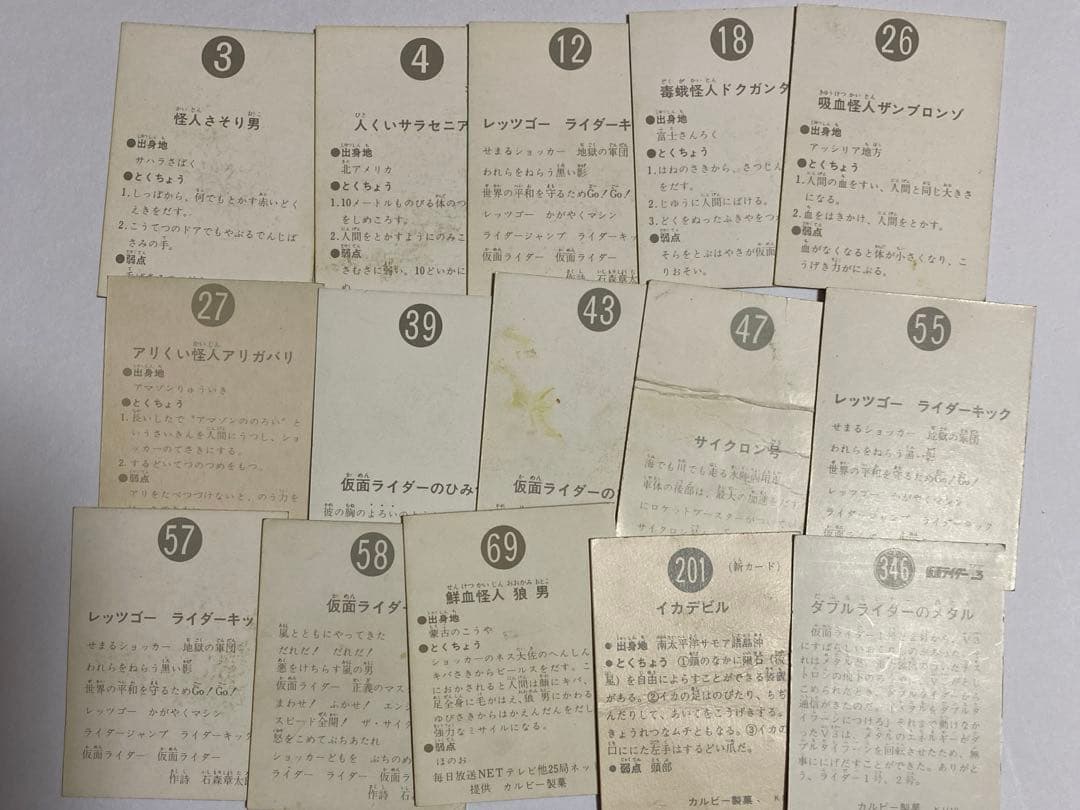 3
怪人さそり男
●出身地
サハラさばく
●とくちょう
1.しっぽから、何でもとかす赤いどくえきをだす。
2.こうてつのドアでもやぶるでんじばさみの手。
●弱点
4
人くいサラセニア
●出身地
北アメリカ
●とくちょう
1.10メートルものびる体のつ
をしめころす。
2.人間をとかすようにのみこ
●弱点
さむさに弱い、10どいかに
12
レッツゴー ライダーキ
せまるショッカー 地獄の軍団
われらをねらう黒い影
世界の平和を守るためGo!Go!
レッツゴー かがやくマシン
ライダージャンプ ライダーキッ
仮面ライダー 仮面ライダー
作詩 石森章太
18
毒蛾怪人ドクガンダ
●出身地
富士さんろく
●とくちょう
1.はねのさきから、さつじん
をだす。
2.じゆうに人間にばける。
3.どくをぬったふきやをつか
●弱点
そらをとぶはやさが仮面
りおそい。
26
吸血怪人ザンブロンゾ
●出身地
アッシリア地方
●とくちょう
1.人間の血をすい、人間と同じ大きさ
になる。
2.血をはきかけ、人間をとかす。
●弱点
血がなくなると体が小さくなり、こ
うげき力がにぶる。
27
アリくい怪人アリガバリ
●出身地
アマゾンりゅういき
●とくちょう
1.長いしたで"アマゾンののろい"と
いうさいきんを人間にうつし、ショ
ッカーのてさきにする。
2.するどいてつのつめをもつ。
●弱点
アリをたべつづけないと、のう力を
39
仮面ライダーのひみ
彼の胸のよろいの
43
仮面ライダーの
47
サイクロン号
海でも川でも走る水陸両用
車体の後部は、最大の加速
にロケットブースターがつい
サイクロン
55
レッツゴー ライダーキック
せまるショッカー 地獄の軍団
われらをねらう黒い影
世界の平和を守るためGo!Go!
レッツゴー かがやくマシン
ライダージャンプ ライダーキック
57
レッツゴー ライダーキッ
せまるショッカー 地獄の軍団
われらをねらう黒い影
世界の平和を守るためGo!Go!
レッツゴー かがやくマシン
ライダージャンプ ライダーキッ
仮面ライダー 仮面ライダー
作詩 石森章太
58
仮面ライダ
嵐とともにやってきた
だれだ! だれだ!
悪をけちらす嵐の男
仮面ライダー 正義のマス
まわせ! ふかせ! エン
スピード全開! ザ・サイク
怒をこめてぶちあたれ
ショッカーどもを ぶちの
仮面ライダー 仮面ライダ
作詩 石
69
鮮血怪人 狼男
●出身地
蒙古のこうや
●とくちょう
ショッカーのネス大佐のへんしん
キバさきからビールスをだす。こ
におかされると人間は顔にキバ、
足全身に毛がはえ、狼男にかわる
ゆびさきからはかえんだんをだし
強力なミサイルになる。
●弱点
ほのお
毎日放送NETテレビ他25局ネッ
提供 カルビー製菓
201
(新カード)
イカデビル
●出身地 南太平洋サモア諸島沖
●とくちょう ①頭のなかに隕石(流
星)を自由によらすことができる装置
がある。②イカの足はのびたり、ちぢ
んだりして、あいてをこうげきする。
きょうれつなムチともなる。③イカの
口ににた左手はするどい爪だ。
●弱点 頭部
カルビー製菓
346
仮面ライダーV3
ダブルライダーのメタル
通信がきたのだ。